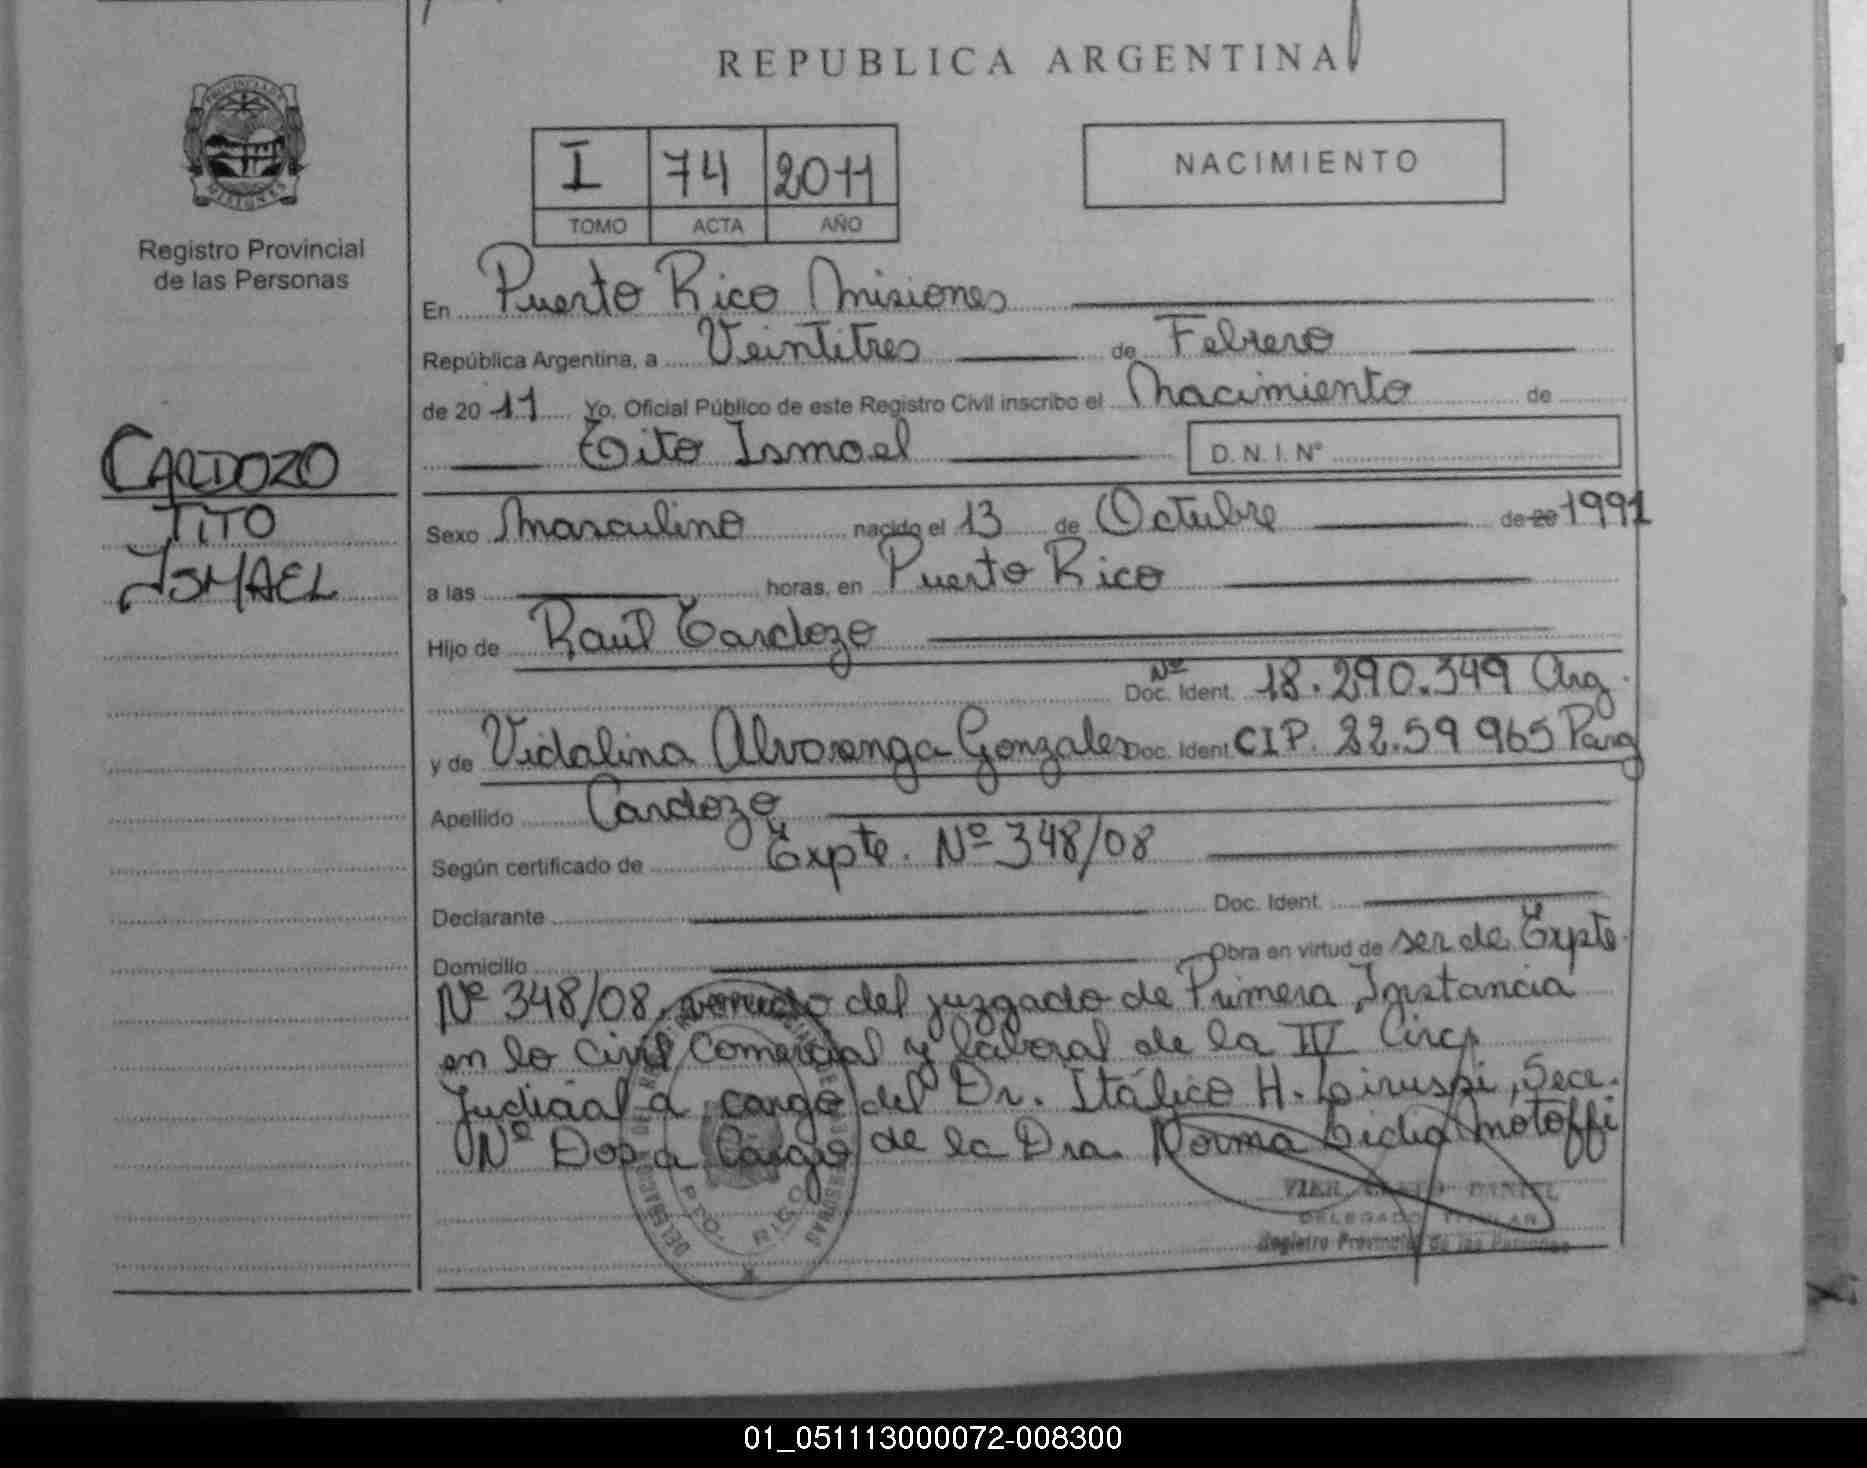 REPUBLICA ARGENTINA
PROVINCIA DE MISIONES
Registro Provincial
de las Personas
I 74 2011
TOMO ACTA AÑO
NACIMIENTO
CARDOZO
TITO
ISMAEL
En Puerto Rico Misiones
República Argentina, a Veintitres de Febrero
de 20 11 Yo, Oficial Público de este Registro Civil inscribo el Nacimiento de
Tito Ismael D. N. I. Nº
Sexo Masculino nacido el 13 de Octubre de 20 1991
a las horas, en Puerto Rico
Hijo de Raul Cardozo
Nº
Doc. Ident. 18.290.349 Arg.
y de Vidalina Alvarenga Gonzales Doc. Ident CIP. 22.59 965 Parg
Apellido Cardozo
Según certificado de Expte. Nº 348/08
Declarante Doc. Ident.
Domicilio Obra en virtud de ser de Expte.
Nº 348/08, venido del juzgado de Primera Instancia
en lo Civil Comercial y laboral de la IV Circ.
Judicial a cargo del Dr. Itálico H. Secr.
Nº Dos a Cargo de la Dra. Norma Lidia Motoffi
PTO. RICO
DANIEL
DELEGADO TITULAR
Registro Provincial de las Personas
01_051113000072-008300